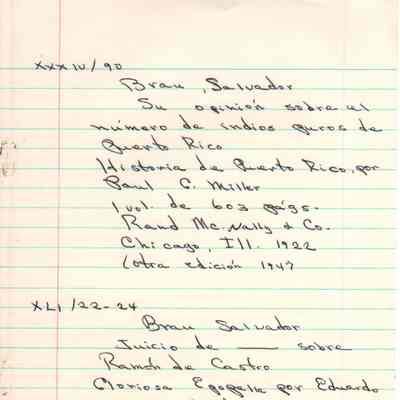 XXXIV/90
Brau, Salvador
Su opinión sobre el
número de indios puros de
Puerto Rico
Historia de Puerto Rico, por
Paul G. Miller
1 vol. de 603 págs.
Rand Mc. Nally & Co.
Chicago, Ill. 1922
(otra edición 1947
XLI/22-24
Brau Salvador
Juicio de —— sobre
Ramón de Castro
Gloriosa Epopeya por Eduardo